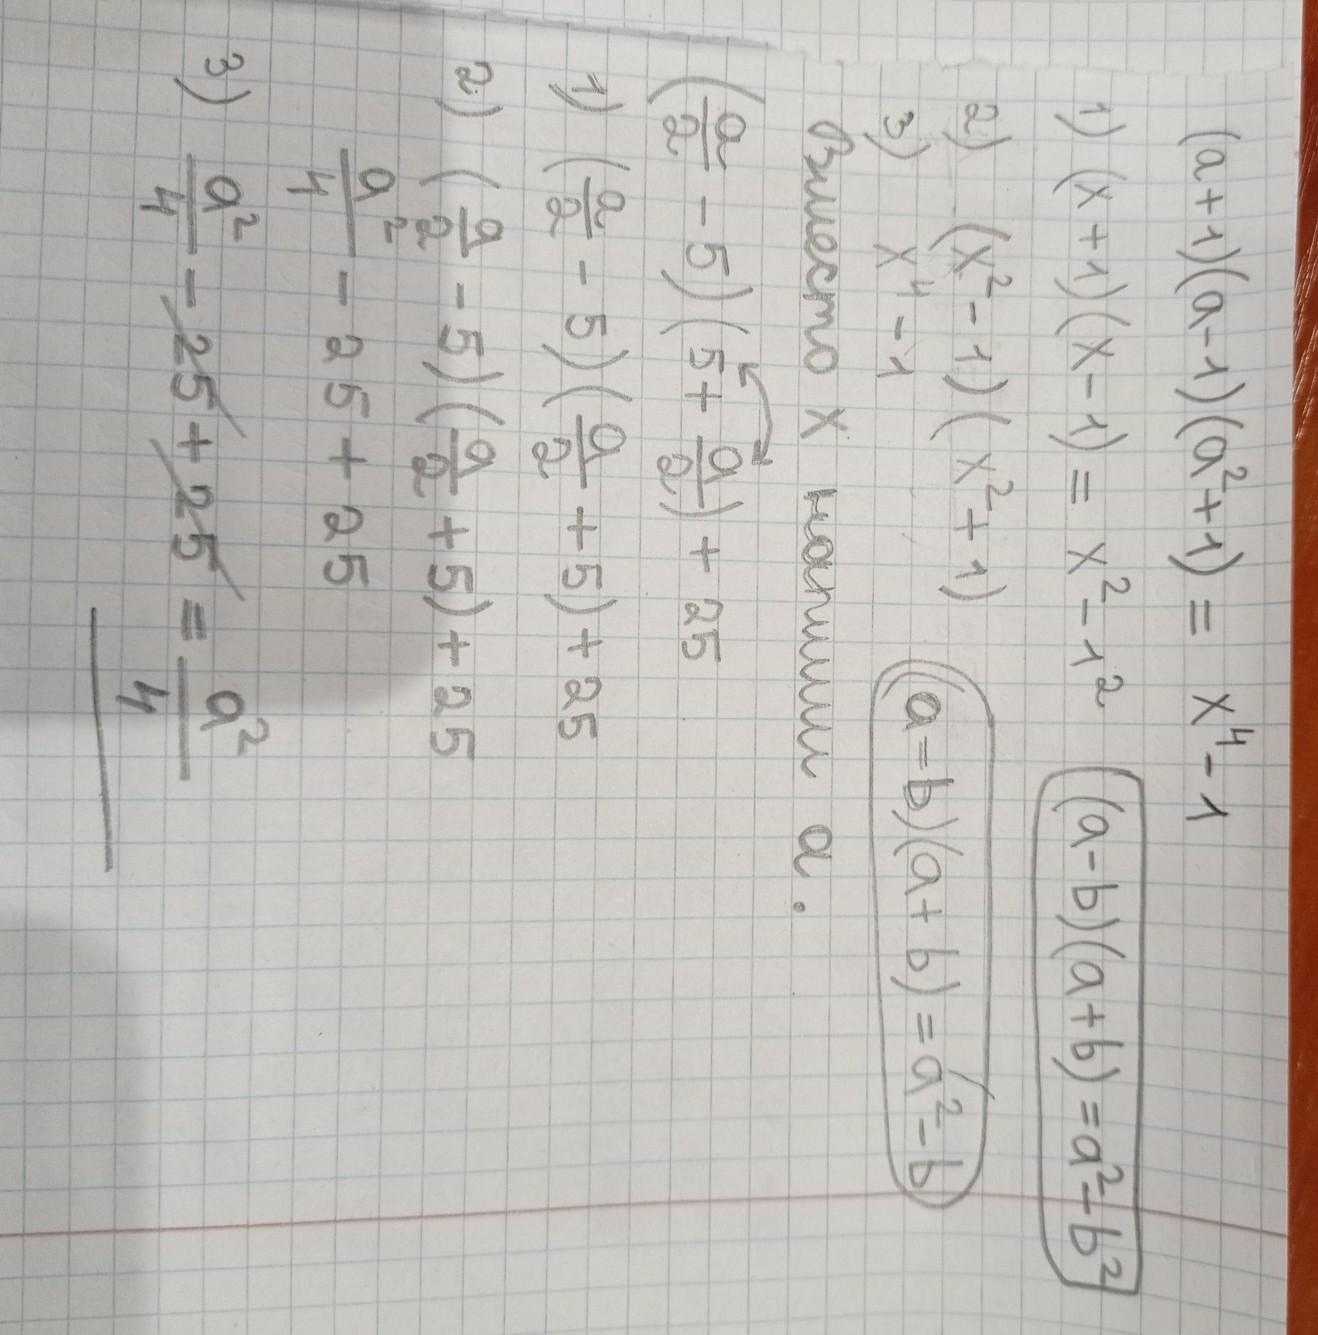 (a+1)(a-1)(a²+1) = x⁴-1
1) (x+1)(x-1) = x²-1² (a-b)(a+b)=a²-b²
2) (x²-1)(x²+1)
3) x⁴-1 (a=b)(a+b)=a²-b
Вместо x напиши a.
(a/2 - 5)(5+ a/2) + 25
1) (a/2 - 5)(a/2 + 5) + 25
2) (a/2 - 5)(a/2 + 5) + 25
a²/4 - 25 + 25
3) a²/4 - 25 + 25 = a²/4